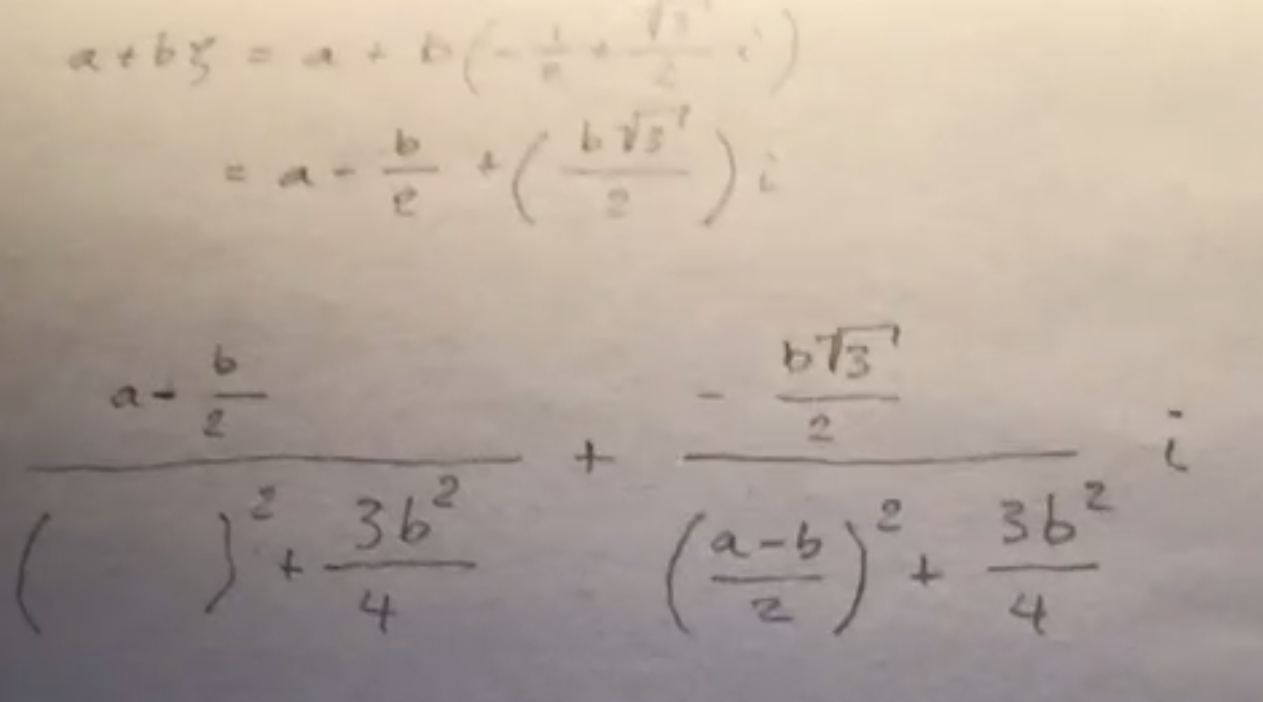 a + bζ = a + b(-1/2 + √3/2 i)
= a - b/2 + (b√3/2) i
(a - b/2)/(( )² + 3b²/4) + (- b√3/2)/(((a-b)/2)² + 3b²/4) i